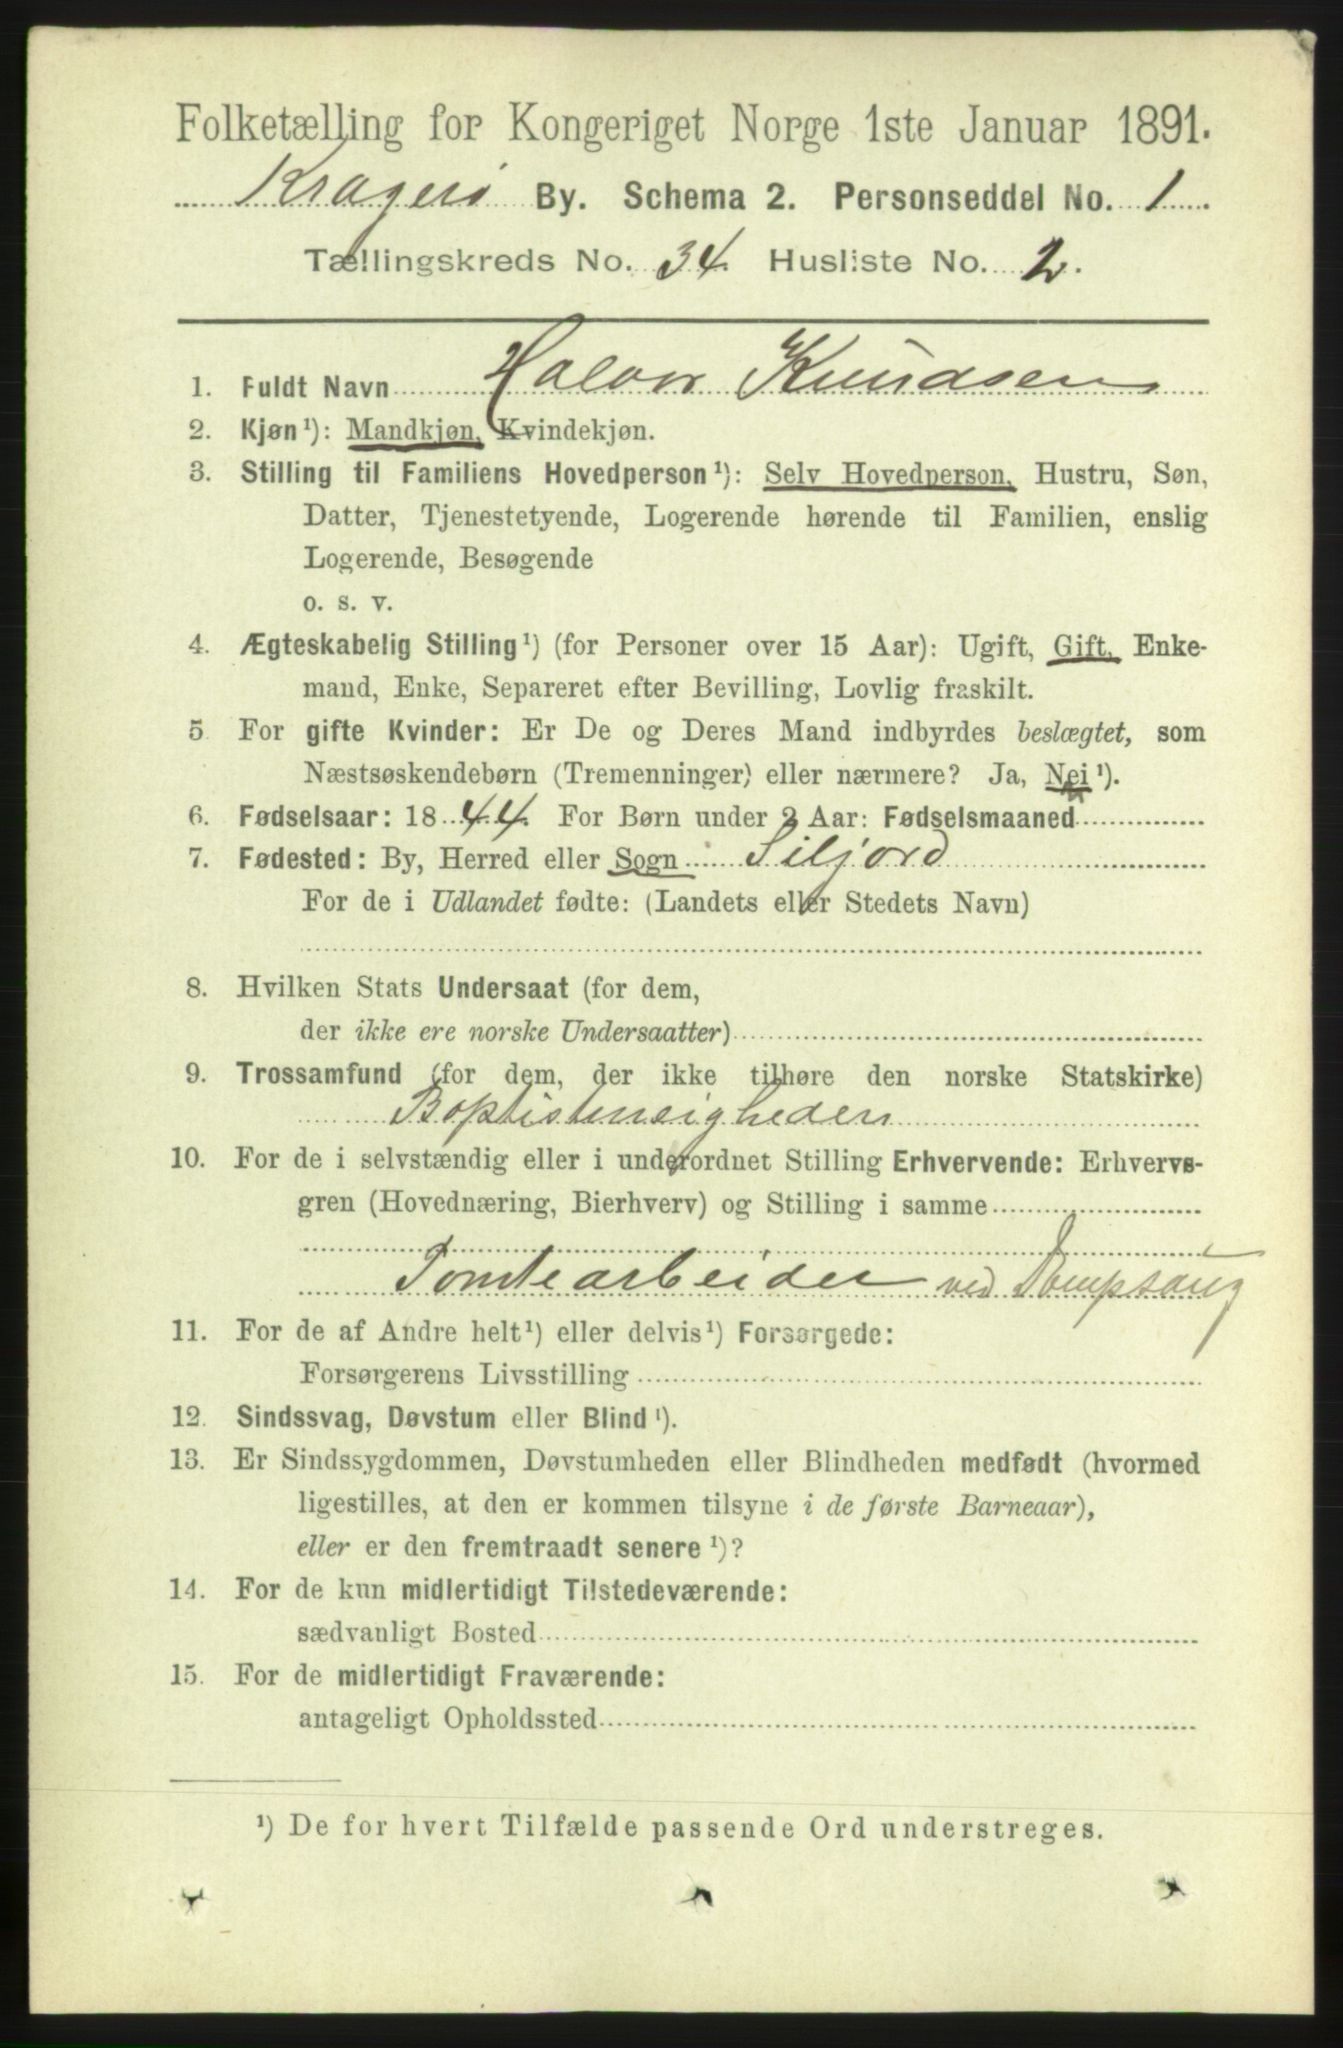 Folketælling for Kongeriget Norge 1ste Januar 1891.
Kragerø By. Schema 2. Personseddel No. 1
Tællingskreds No. 34 Husliste No. 2.
1. Fuldt Navn Halvor Knudsen
2. Kjøn¹): Mandkjøn, Kvindekjøn.
3. Stilling til Familiens Hovedperson¹): Selv Hovedperson, Hustru, Søn,
Datter, Tjenestetyende, Logerende hørende til Familien, enslig
Logerende, Besøgende
o. s. v.
4. Ægteskabelig Stilling¹) (for Personer over 15 Aar): Ugift, Gift, Enke-
mand, Enke, Separeret efter Bevilling, Lovlig fraskilt.
5 For gifte Kvinder: Er De og Deres Mand indbyrdes beslægtet, som
Næstsøskendebørn (Tremenninger) eller nærmere? Ja, Nei¹).
6. Fødselsaar: 1844. For Børn under 2 Aar: Fødselsmaaned
7. Fødested: By, Herred eller Sogn Siljord
For de i Udlandet fødte: (Landets eller Stedets Navn)
8. Hvilken Stats Undersaat (for dem,
der ikke ere norske Undersaatter)
9. Trossamfund (for dem, der ikke tilhøre den norske Statskirke)
Baptistmeigheden
10. For de i selvstændig eller i underordnet Stilling Erhvervende: Erhvervs-
gren (Hovednæring, Bierhverv) og Stilling i samme
Tomtearbeider ved Dampsaug
11. For de af Andre helt¹) eller delvis¹) Forsørgede:
Forsørgerens Livsstilling
12. Sindssvag, Døvstum eller Blind¹).
13. Er Sindssygdommen, Døvstumheden eller Blindheden medfødt (hvormed
ligestilles, at den er kommen tilsyne i de første Barneaar),
eller er den fremtraadt senere¹)?
14. For de kun midlertidigt Tilstedeværende:
sædvanligt Bosted
15. For de midlertidigt Fraværende:
antageligt Opholdssted
¹) De for hvert Tilfælde passende Ord understreges.